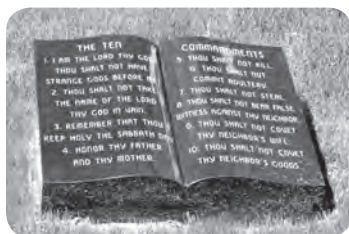 THE TEN
1. I AM THE LORD THY GOD
THOU SHALT NOT HAVE
STRANGE GODS BEFORE ME
2. THOU SHALT NOT TAKE
THE NAME OF THE LORD
THY GOD IN VAIN.
3. REMEMBER THAT THOU
KEEP HOLY THE SABBATH DAY
4. HONOR THY FATHER
AND THY MOTHER.
COMMANDMENTS
5. THOU SHALT NOT KILL.
6. THOU SHALT NOT
COMMIT ADULTERY.
7. THOU SHALT NOT STEAL.
8. THOU SHALT NOT BEAR FALSE
WITNESS AGAINST THY NEIGHBOR.
9. THOU SHALT NOT COVET
THY NEIGHBOR'S WIFE.
10. THOU SHALT NOT COVET
THY NEIGHBOR'S GOODS.